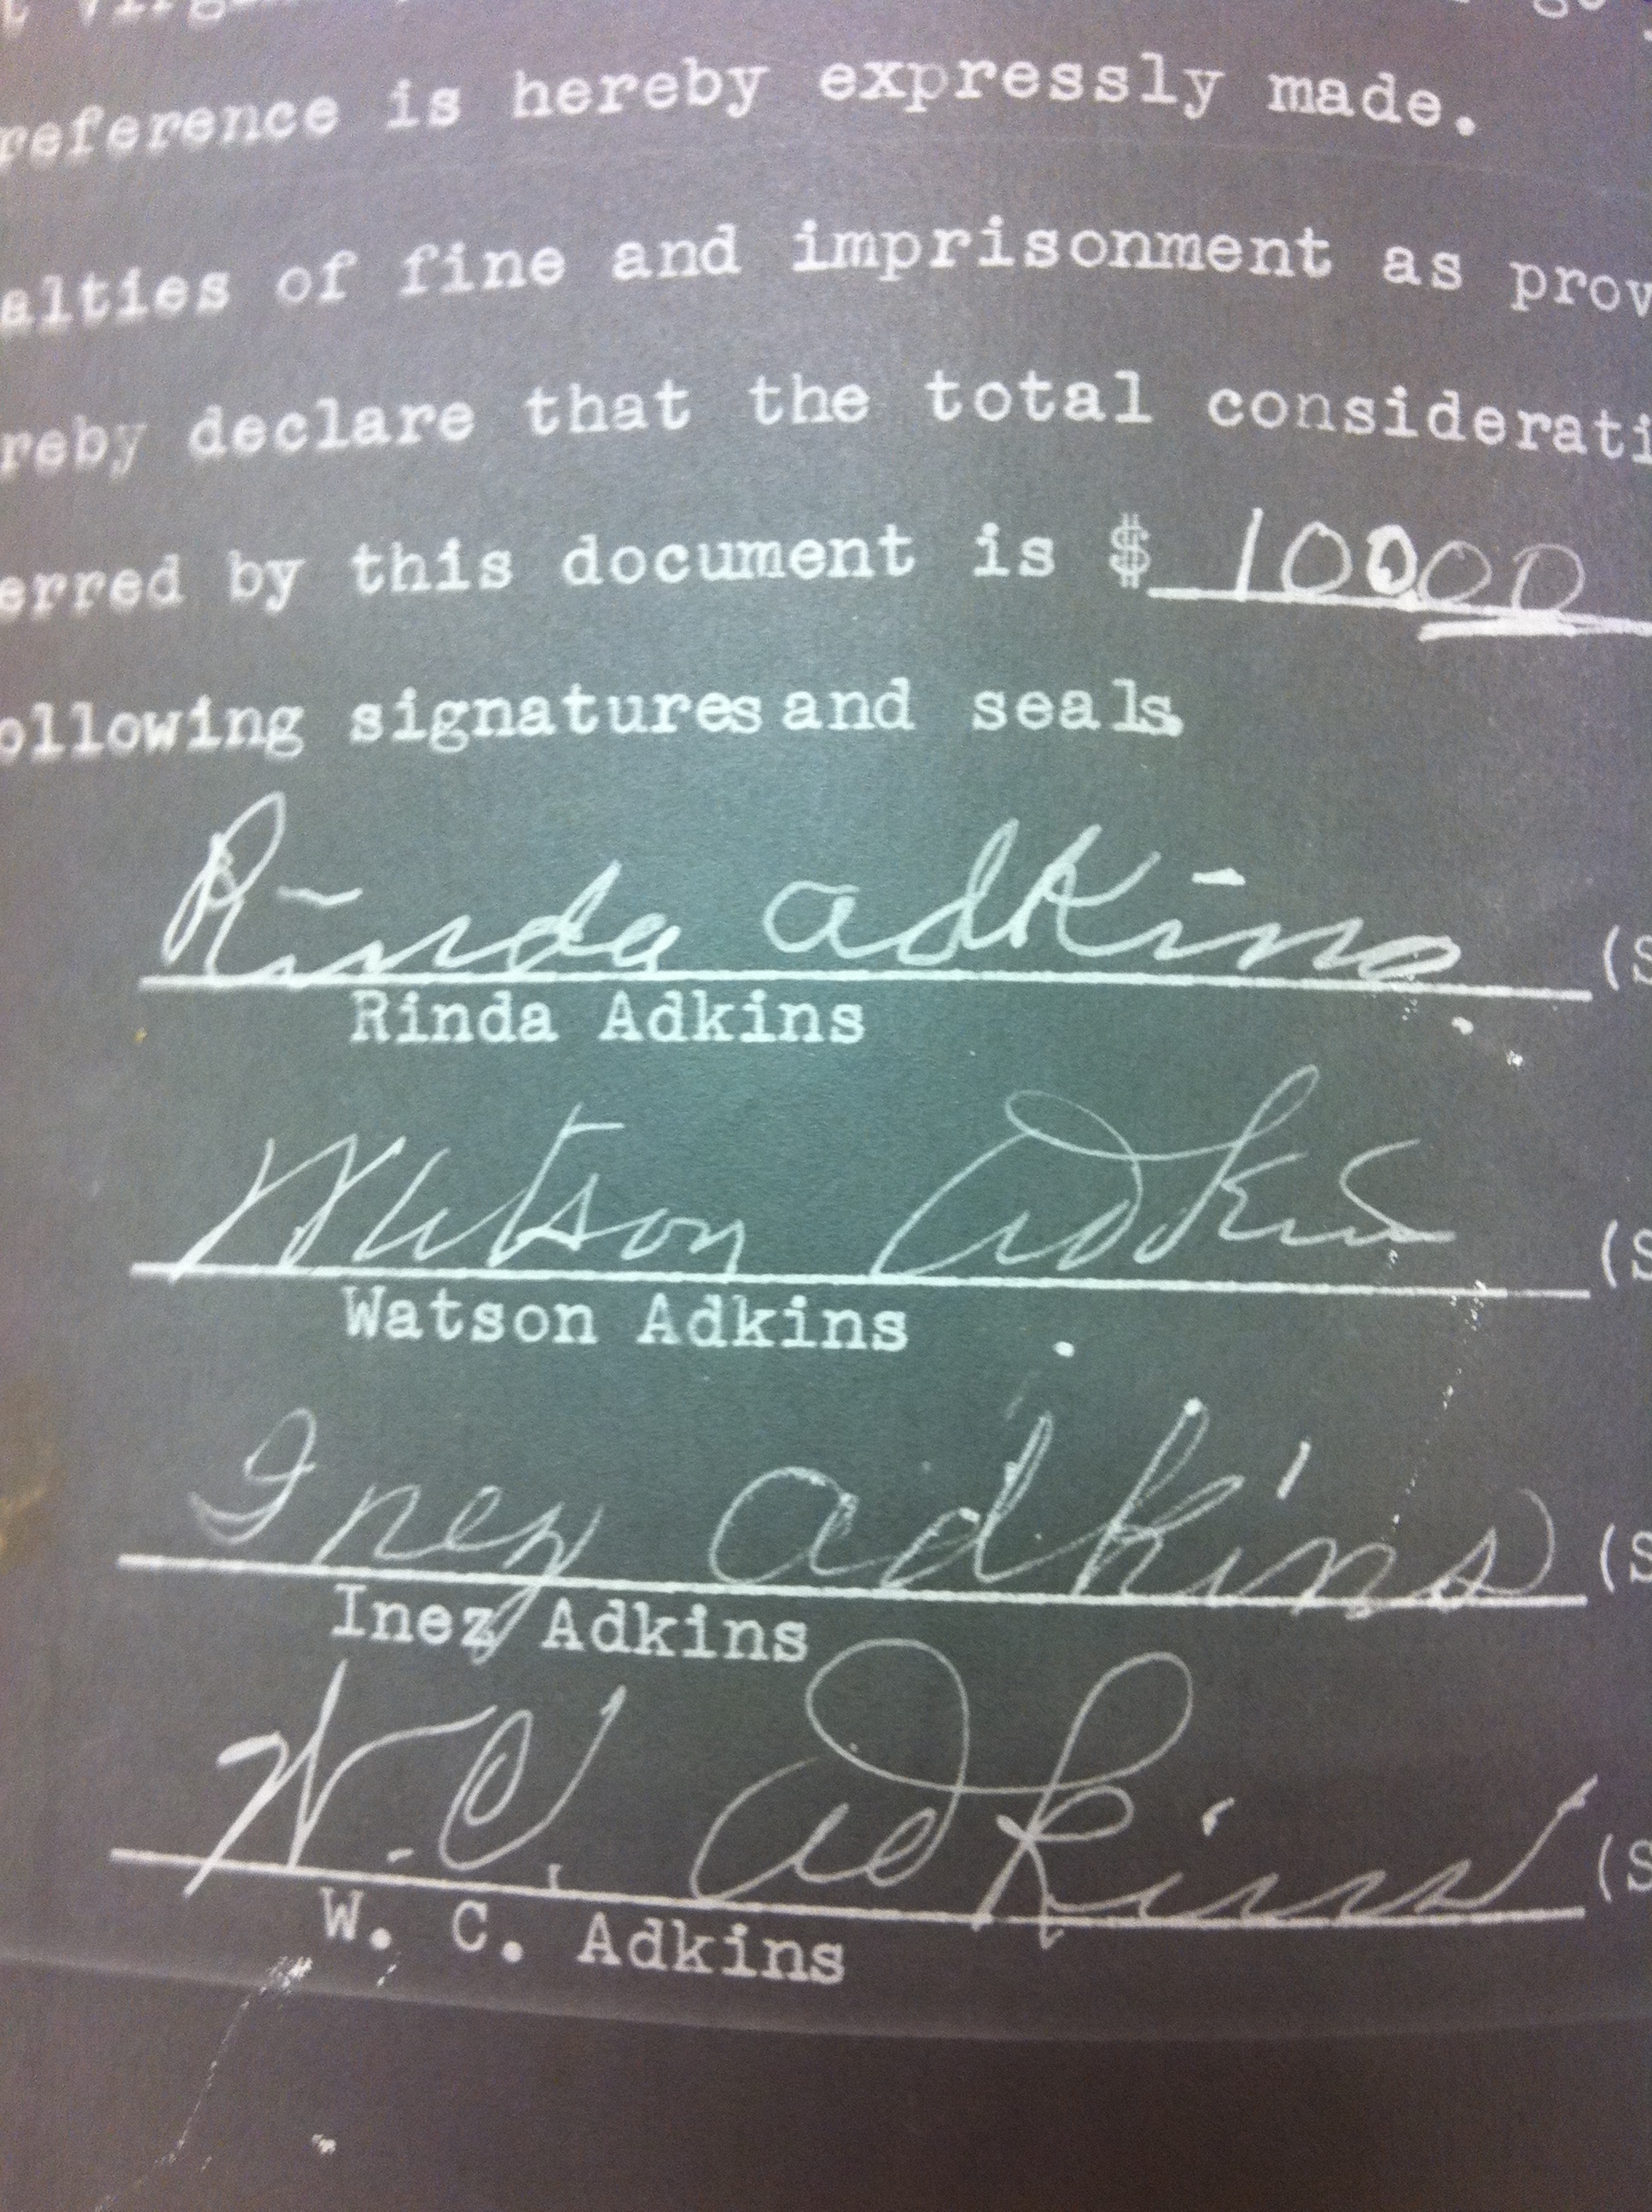 reference is hereby expressly made.
alties of fine and imprisonment as prov
reby declare that the total considerati
erred by this document is $ 10000
ollowing signatures and seals.
Rinda Adkins (S
Rinda Adkins
Watson Adkins (S
Watson Adkins
Inez Adkins (S
Inez Adkins
W. C. Adkins (S
W. C. Adkins